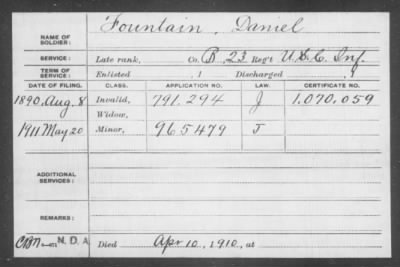 NAME OF SOLDIER: Fountain, Daniel
SERVICE: Late rank, Co. B, 23 Reg't U.S.C. Inf.
TERM OF SERVICE: Enlisted , 1 Discharged , 1
DATE OF FILING. CLASS. APPLICATION NO. LAW. CERTIFICATE NO.
1890 Aug. 8 Invalid, 791.294 J 1.070.059
Widow,
1911 May 20 Minor, 965479 J
ADDITIONAL SERVICES:
REMARKS:
N.D.A. Died Apr 10, 1910, at